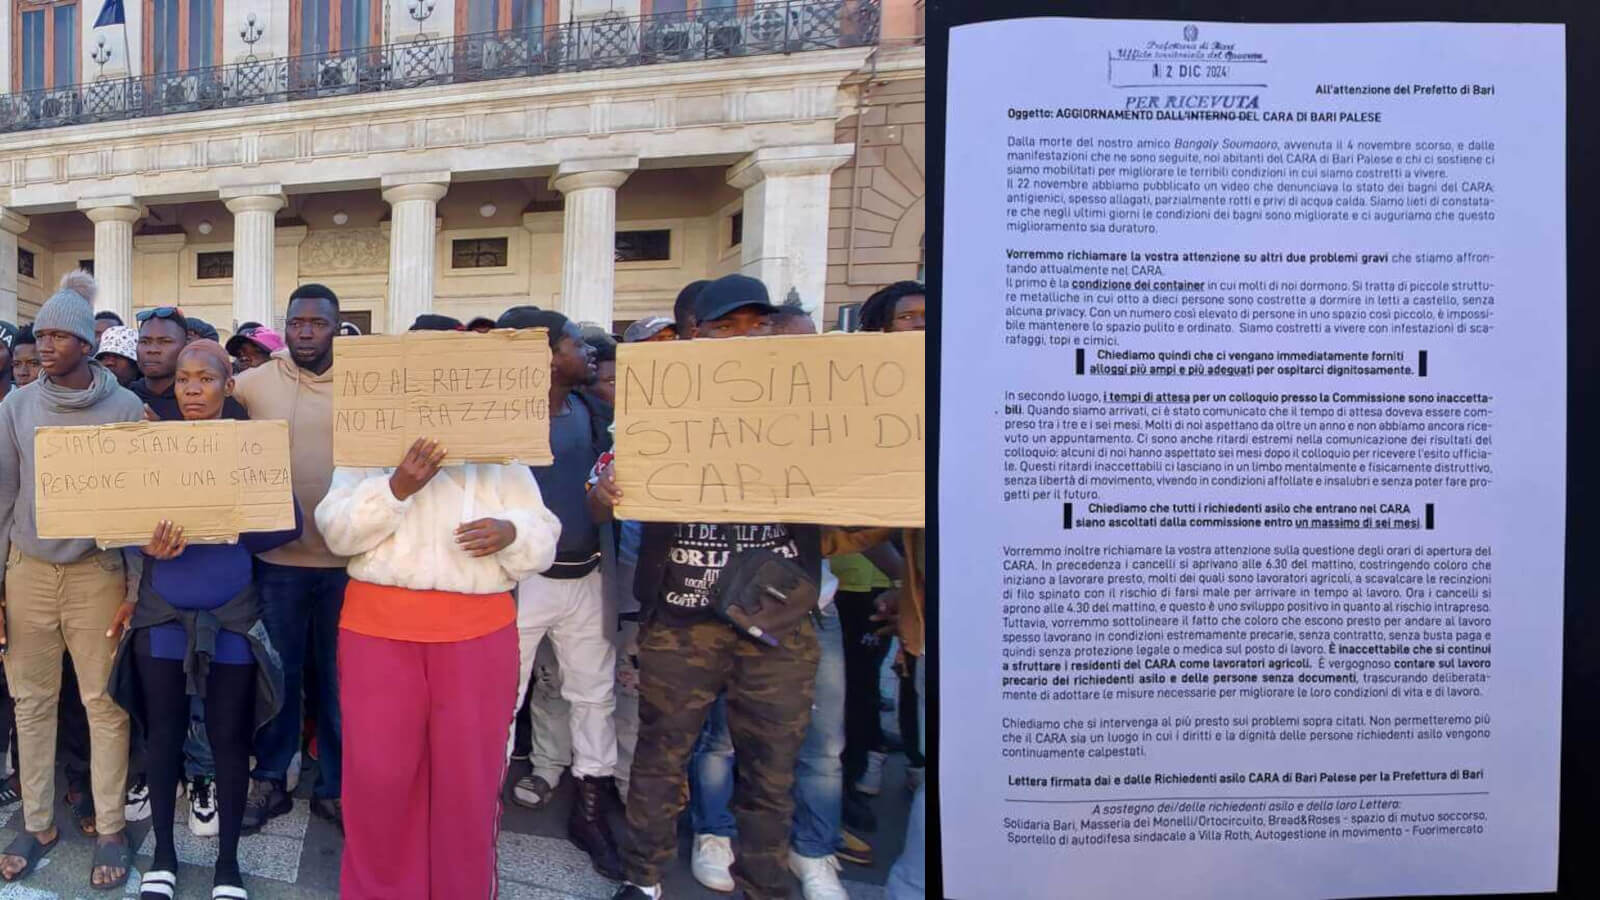 SIAMO STANGHI 10
PERSONE IN UNA STANZA
NO AL RAZZISMO
NO AL RAZZISMO
NOI SiAMO
STANCHI DI
CARA
Prefettura di Bari
Ufficio territoriale del Governo
1 2 DIC 2024
PER RICEVUTA
All'attenzione del Prefetto di Bari
Oggetto: AGGIORNAMENTO DALL'INTERNO DEL CARA DI BARI PALESE
Dalla morte del nostro amico Bangaly Soumaoro, avvenuta il 4 novembre scorso, e dalle
manifestazioni che ne sono seguite, noi abitanti del CARA di Bari Palese e chi ci sostiene ci
siamo mobilitati per migliorare le terribili condizioni in cui siamo costretti a vivere.
Il 22 novembre abbiamo pubblicato un video che denunciava lo stato dei bagni del CARA:
antigienici, spesso allagati, parzialmente rotti e privi di acqua calda. Siamo lieti di constata-
re che negli ultimi giorni le condizioni dei bagni sono migliorate e ci auguriamo che questo
miglioramento sia duraturo.
Vorremmo richiamare la vostra attenzione su altri due problemi gravi che stiamo affron-
tando attualmente nel CARA.
Il primo è la condizione dei container in cui molti di noi dormono. Si tratta di piccole struttu-
re metalliche in cui otto a dieci persone sono costrette a dormire in letti a castello, senza
alcuna privacy. Con un numero così elevato di persone in uno spazio così piccolo, è impossi-
bile mantenere lo spazio pulito e ordinato. Siamo costretti a vivere con infestazioni di sca-
rafaggi, topi e cimici.
Chiediamo quindi che ci vengano immediatamente forniti
alloggi più ampi e più adeguati per ospitarci dignitosamente.
In secondo luogo, i tempi di attesa per un colloquio presso la Commissione sono inaccetta-
bili. Quando siamo arrivati, ci è stato comunicato che il tempo di attesa doveva essere com-
preso tra i tre e i sei mesi. Molti di noi aspettano da oltre un anno e non abbiamo ancora rice-
vuto un appuntamento. Ci sono anche ritardi estremi nella comunicazione dei risultati del
colloquio: alcuni di noi hanno aspettato sei mesi dopo il colloquio per ricevere l'esito ufficia-
le. Questi ritardi inaccettabili ci lasciano in un limbo mentalmente e fisicamente distruttivo,
senza libertà di movimento, vivendo in condizioni affollate e insalubri e senza poter fare pro-
getti per il futuro.
Chiediamo che tutti i richiedenti asilo che entrano nel CARA
siano ascoltati dalla commissione entro un massimo di sei mesi.
Vorremmo inoltre richiamare la vostra attenzione sulla questione degli orari di apertura del
CARA. In precedenza i cancelli si aprivano alle 6.30 del mattino, costringendo coloro che
iniziano a lavorare presto, molti dei quali sono lavoratori agricoli, a scavalcare le recinzioni
di filo spinato con il rischio di farsi male per arrivare in tempo al lavoro. Ora i cancelli si
aprono alle 4.30 del mattino, e questo è uno sviluppo positivo in quanto al rischio intrapreso.
Tuttavia, vorremmo sottolineare il fatto che coloro che escono presto per andare al lavoro
spesso lavorano in condizioni estremamente precarie, senza contratto, senza busta paga e
quindi senza protezione legale o medica sul posto di lavoro. È inaccettabile che si continui
a sfruttare i residenti del CARA come lavoratori agricoli. È vergognoso contare sul lavoro
precario dei richiedenti asilo e delle persone senza documenti, trascurando deliberata-
mente di adottare le misure necessarie per migliorare le loro condizioni di vita e di lavoro.
Chiediamo che si intervenga al più presto sui problemi sopra citati. Non permetteremo più
che il CARA sia un luogo in cui i diritti e la dignità delle persone richiedenti asilo vengono
continuamente calpestati.
Lettera firmata dai e dalle Richiedenti asilo CARA di Bari Palese per la Prefettura di Bari
A sostegno dei/delle richiedenti asilo e della loro Lettera:
Solidaria Bari, Masseria dei Monelli/Ortocircuito, Bread&Roses - spazio di mutuo soccorso,
Sportello di autodifesa sindacale a Villa Roth, Autogestione in movimento - Fuorimercato